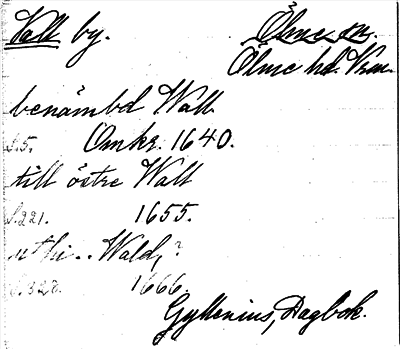 Vall by. Ölme sn.
Ölme hd. Vrm.
benämbd Wall
S.5. Omkr. 1640.
till östre Wall
S.221. 1655.
uthi .. Wald,?
S.328. 1666.
Gyllenius, Dagbok.